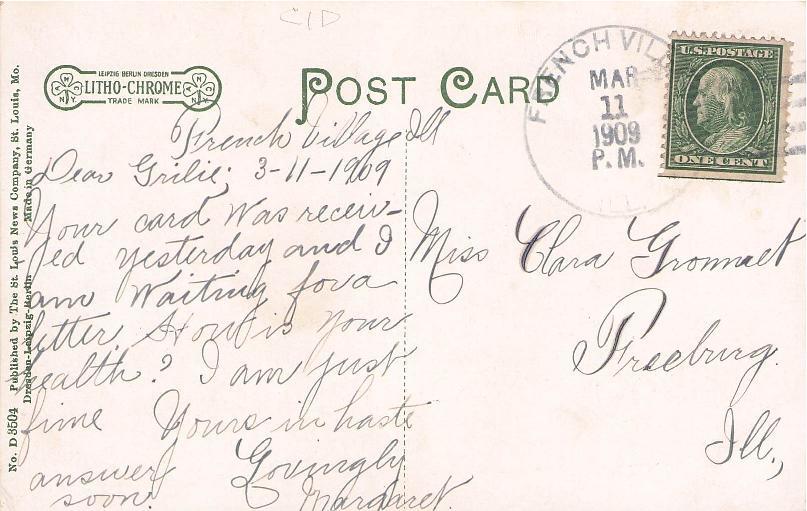 CID
LEIPZIG BERLIN DRESDEN
LITHO-CHROME
TRADE MARK
N N Y
N N Y
POST CARD
FRENCH VIL
MAR
11
1909
P.M.
ILL.
U.S. POSTAGE
ONE CENT
No. D 3504 Published by The St. Louis News Company, St. Louis, Mo.
Dresden-Leipzig-Berlin Made in Germany
French Village Ill
Dear Grilie; 3-11-1909
Your card was receiv-
ed yesterday and I
am waiting for a
letter. How is your
health? I am just
fine Yours in haste
answer Lovingly
soon. Margaret.
Miss Clara
Freeburg.
Ill.,